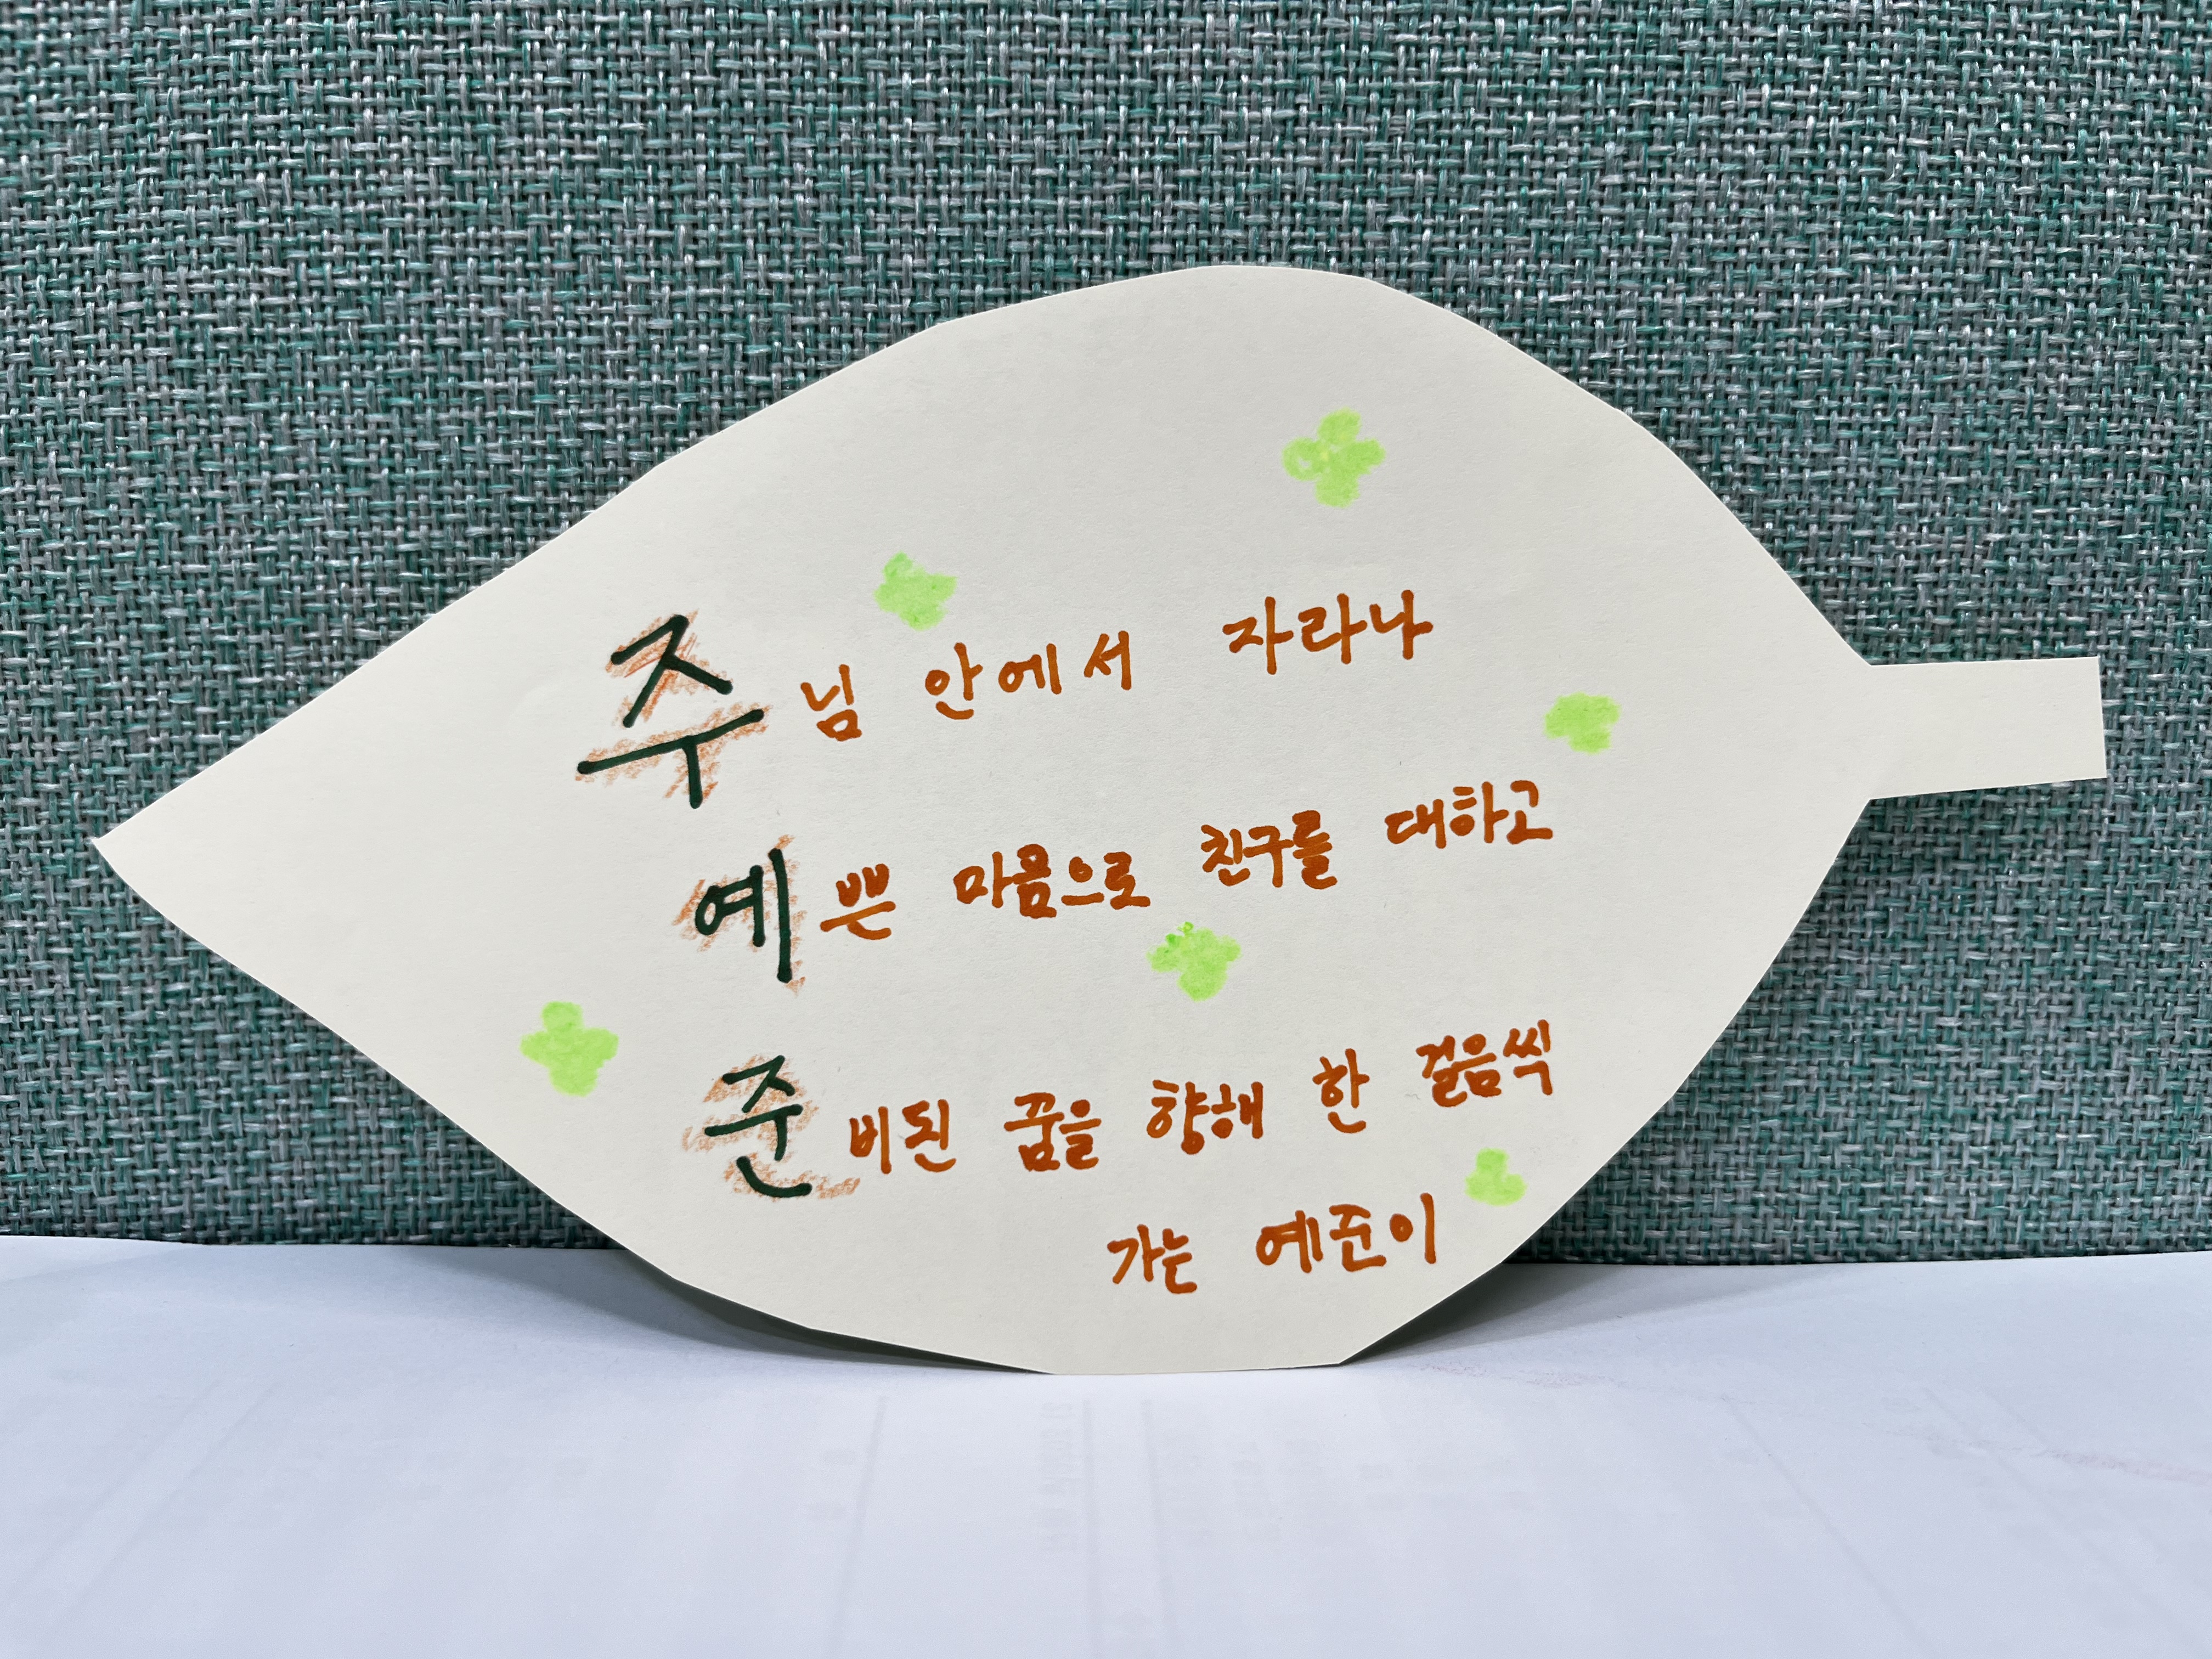 주님 안에서 자라나
예쁜 마음으로 친구를 대하고
준비된 꿈을 향해 한 걸음씩
가는 예준이